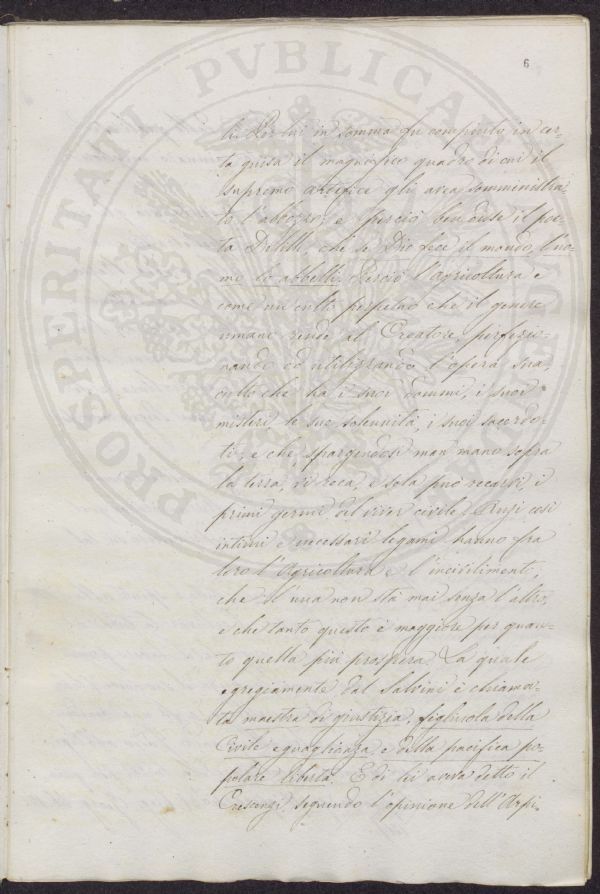 6
ti. Per lui in somma fu compiuto in cer-
ta guisa il magnifico quadro di cui il
supremo artefice gli avea somministra-
to l'abbozzo; e perciò ben disse il poe-
ta Delill, che se Dio fece il mondo, l'uo-
mo lo abbellì. Perciò l'agricoltura è
come un culto perpetuo che il genere
umano rende al Creatore, perfezio-
nando ed utilizzando l'opera sua,
culto che ha i suoi dommi, i suoi
misteri, le sue solennità, i suoi sacerdo-
ti, e che spargendosi man mano sopra
la terra, vi reca, e sola può recarvi, i
primi germi del viver civile. Anzi così
intimi e necessari legami hanno fra
loro l'Agricoltura e l'incivilimento,
che l'una non stà mai senza l'altro,
e che tanto questo è maggiore per quan-
to quella più prospera. La quale
egregiamente dal Salvini è chiama-
ta maestra di giustizia, figliuola della
Civile eguaglianza, e della pacifica po-
polare libertà. E di lei aveva detto il
Crescenzi, seguendo l'opinione dell'Arpi-
PROSPERITATI PVBLICAE